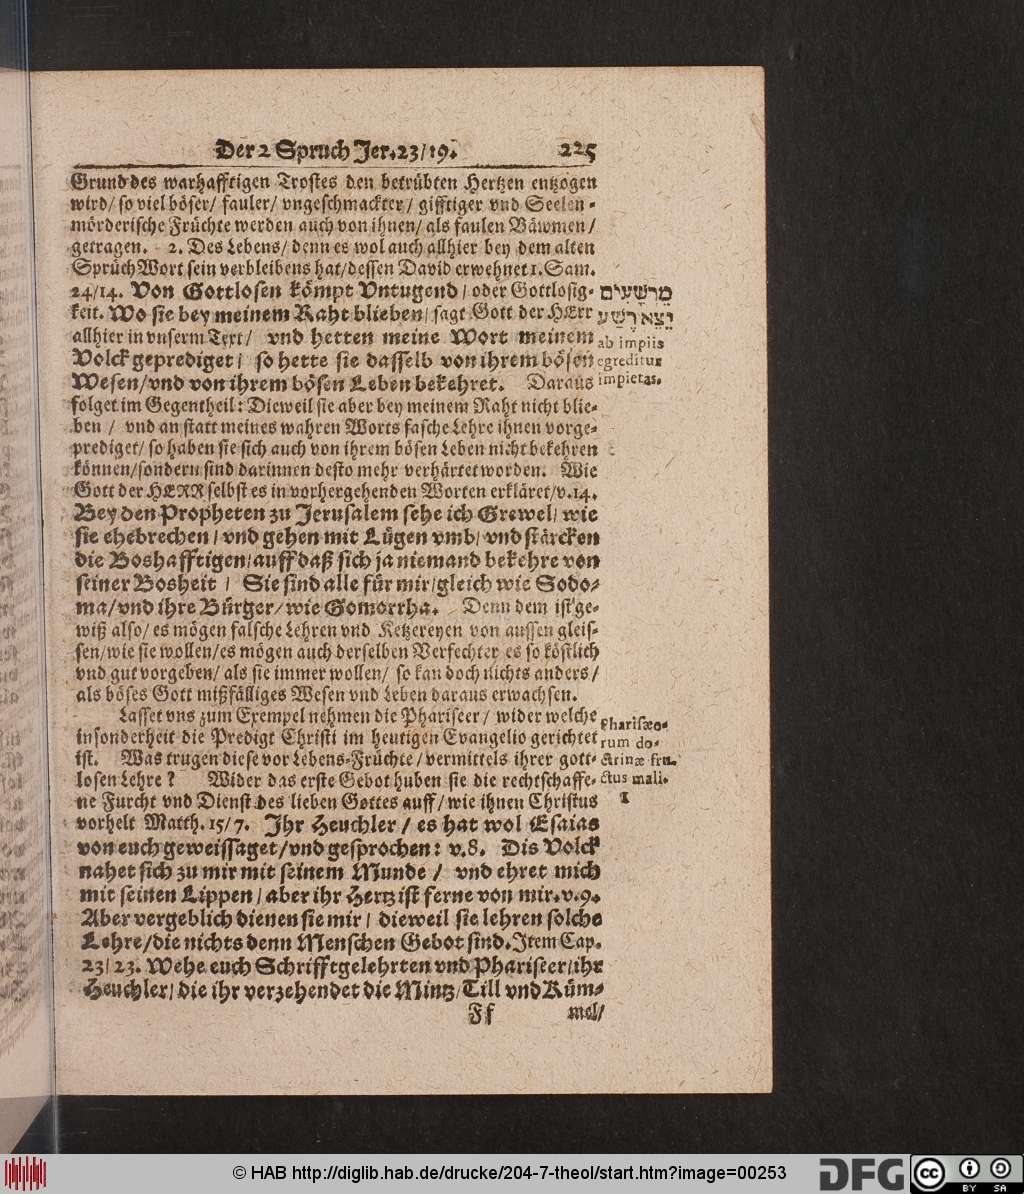 Der 2 Spruch Jer. 23/19. 225
Grund des warhafftigen Trostes den betrübten Hertzen entzogen
wird/ so viel böser/ fauler/ vngeschmackter/ gifftiger vnd Seelen-
mörderische Früchte werden auch von ihnen/ als faulen Bäwmen/
getragen. 2. Des Lebens/ denn es wol auch allhier bey dem alten
SprüchWort sein verbleibens hat/ dessen David erwehnet 1. Sam.
24/14. Von Gottlosen kömpt Vntugend/ oder Gottlosig-
keit. Wo sie bey meinem Raht blieben/ sagt Gott der HErr
allhier in vnserm Text/ vnd hetten meine Wort meinem
Volck geprediget/ so hette sie dasselb von ihrem bösen
Wesen/ vnd von ihrem bösen Leben bekehret. Daraus
folget im Gegentheil: Dieweil sie aber bey meinem Raht nicht blie-
ben/ vnd an statt meines wahren Worts fasche Lehre ihnen vorge-
prediget/ so haben sie sich auch von ihrem bösen Leben nicht bekehren
können/ sondern sind darinnen desto mehr verhärtet worden. Wie
Gott der HERR selbst es in vorhergehenden Worten erkläret/ v. 14.
Bey den Propheten zu Jerusalem sehe ich Grewel/ wie
sie ehebrechen/ vnd gehen mit Lügen vmb/ vnd stärcken
die Boshafftigen/ auff daß sich ja niemand bekehre von
seiner Bosheit/ Sie sind alle für mir/ gleich wie Sodo-
ma/ vnd ihre Bürger/ wie Gomorrha. Denn dem ist ge-
wiß also/ es mögen falsche Lehren vnd Ketzereyen von aussen gleis-
sen/ wie sie wollen/ es mögen auch derselben Verfechter es so köstlich
vnd gut vorgeben/ als sie immer wollen/ so kan doch nichts anders/
als böses Gott mißfälliges Wesen vnd Leben daraus erwachsen.
Lasset vns zum Exempel nehmen die Phariseer/ wider welche
insonderheit die Predigt Christi im heutigen Evangelio gerichtet
ist. Was trugen diese vor Lebens-Früchte/ vermittels ihrer gott-
losen Lehre? Wider das erste Gebot huben sie die rechtschaffe-
ne Furcht vnd Dienst des lieben Gottes auff/ wie ihnen Christus
vorhelt Matth. 15/7. Ihr Heuchler/ es hat wol Esaias
von euch geweissaget/ vnd gesprochen: v. 8. Dis Volck
nahet sich zu mir mit seinem Munde/ vnd ehret mich
mit seinen Lippen/ aber ihr Hertz ist ferne von mir. v. 9.
Aber vergeblich dienen sie mir/ dieweil sie lehren solche
Lehre/ die nichts denn Menschen Gebot sind. Item Cap.
23/23. Wehe euch Schrifftgelehrten vnd Phariseer/ ihr
Heuchler/ die ihr verzehendet die Mintz/ Till vnd Küm-
Ff mel/
מֵרְשָׁעִים
יֵצֵא רֶשַׁע
ab impiis
egreditur
impietas.
Pharisæo-
rum do-
ctrinæ fru-
ctus mali.
1
© HAB http://diglib.hab.de/drucke/204-7-theol/start.htm?image=00253
DFG
cc BY SA